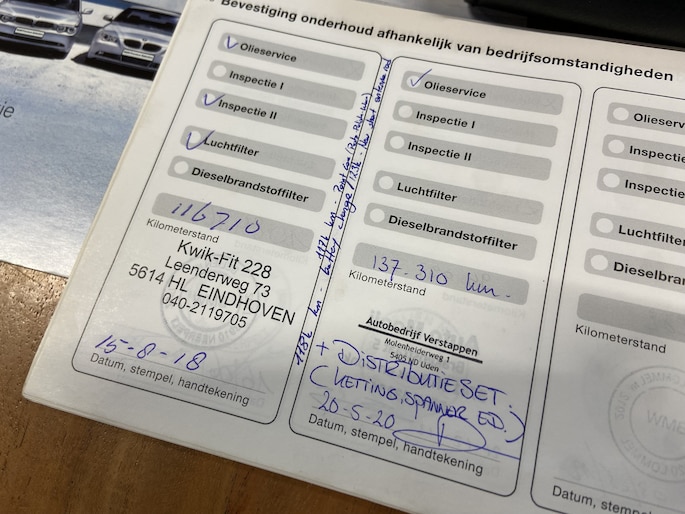 Bevestiging onderhoud afhankelijk van bedrijfsomstandigheden
Olieservice
Inspectie I
Inspectie II
Luchtfilter
Dieselbrandstoffilter
116710
Kilometerstand
Kwik-Fit 228
Leenderweg 73
5614 HL EINDHOVEN
040-2119705
15-8-18
Datum, stempel, handtekening
118k km - battery change
117k km -
Olieservice
Inspectie I
Inspectie II
Luchtfilter
Dieselbrandstoffilter
137.310 km.
Kilometerstand
Autobedrijf Verstappen
Molenheiderweg 1
5405 ND Uden
+ DISTRIBUTIESET
(KETTING, SPANNER ED.)
20-5-20
Datum, stempel, handtekening
Olieserv
Inspectie
Inspectie
Luchtfilter
Dieselbran
Kilometerstand
Datum, stem